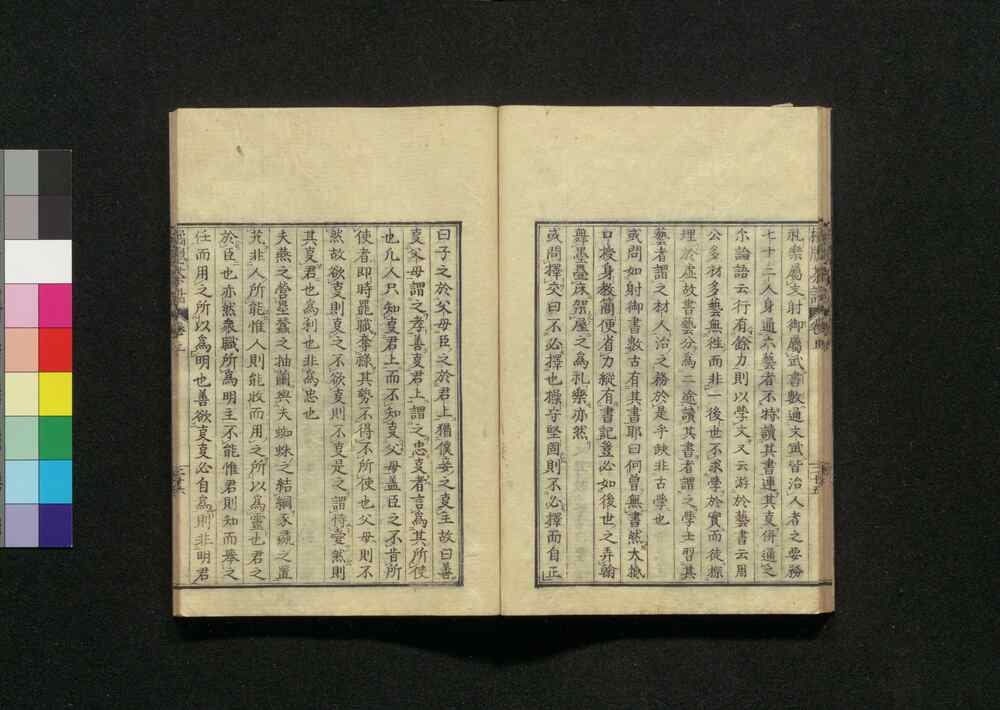 礼樂屬文射御屬武書數通文武皆治人者之要務
七十二人身通六藝者不特讀其書連其事併通之
尒論語云行有餘力則以學文又云游於藝書云用
公多材多藝無徃而非一後世不求學於實而徒探
理於虚故書藝分為二途讀其書者謂之學士習其
藝者謂之材人治之務於是乎缺非古學也
或問如射御書數古有其書耶曰何曽無書然大抵
口授身教簡便省力縦有書記豈必如後世之弄翰
舞墨疊床架屋之為礼樂亦然
或問擇交曰不必擇也操守堅固則不必擇而自正
曰子之於父母臣之於君上猶僕妾之事主故曰善
事父母謂之孝善事君上謂之忠事者言為其所使
也凢人只知事君上而不知事父母盖臣之不肯所
使者即時罷職奪祿其勢不得不所使也父母則不
然故欲事則事之不欲事則不事是之謂恃愛然則
其事君也為利也非為忠也
夫燕之營壘蚕之抽繭與夫蜘蛛之結網豕彘之置
非人所能惟人則能收而用之所以為靈也君之
於臣也亦然衆職所為明主不能惟君則知而舉之
任而用之所以為明也善欲事事必自為則非明君